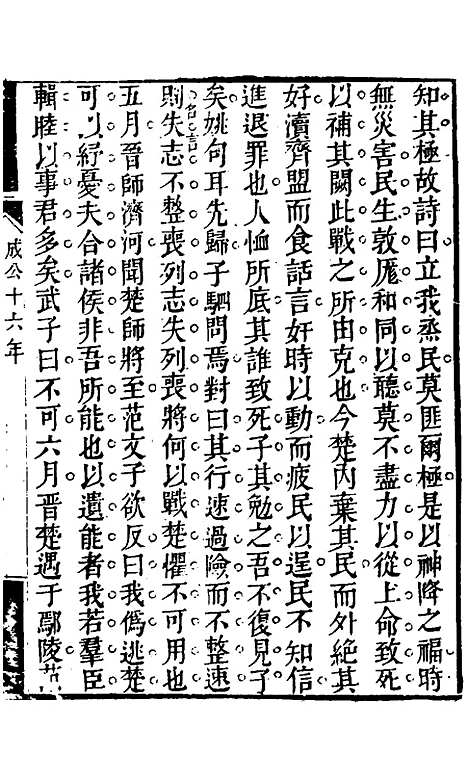 知其極故詩曰立我烝民莫匪爾極是以神降之福時
無災害民生敦厖和同以聽莫不盡力以從上命致死
以補其闕此戰之所由克也今楚內棄其民而外絕其
好瀆齊盟而食話言奸時以動而疲民以逞民不知信
進退罪也人恤所底其誰致死子其勉之吾不復見子
矣姚句耳先歸子駟問焉對曰其行速過險而不整速
則失志不整喪列志失列喪將何以戰楚懼不可用也
名言
五月晉師濟河聞楚師將至范文子欲反曰我僞逃楚
可以紓憂夫合諸侯非吾所能也以遺能者我若羣臣
輯睦以事君多矣武子曰不可六月晉楚遇于鄢陵
成公十六年